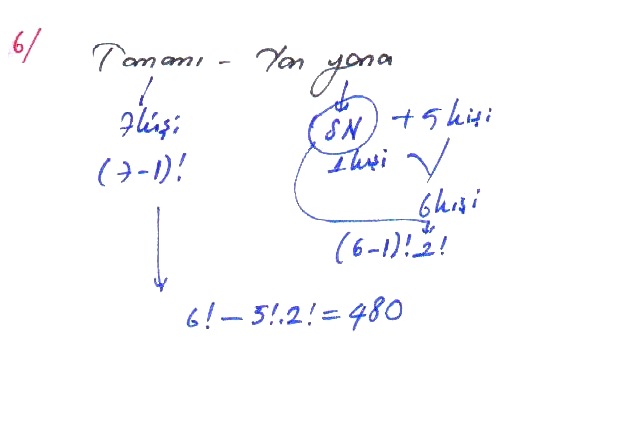 6/ Tamamı - Yan yana
7 kişi SN + 5 kişi
(7-1)! 1 kişi
6 kişi
(6-1)! 2!
6! - 5!.2! = 480